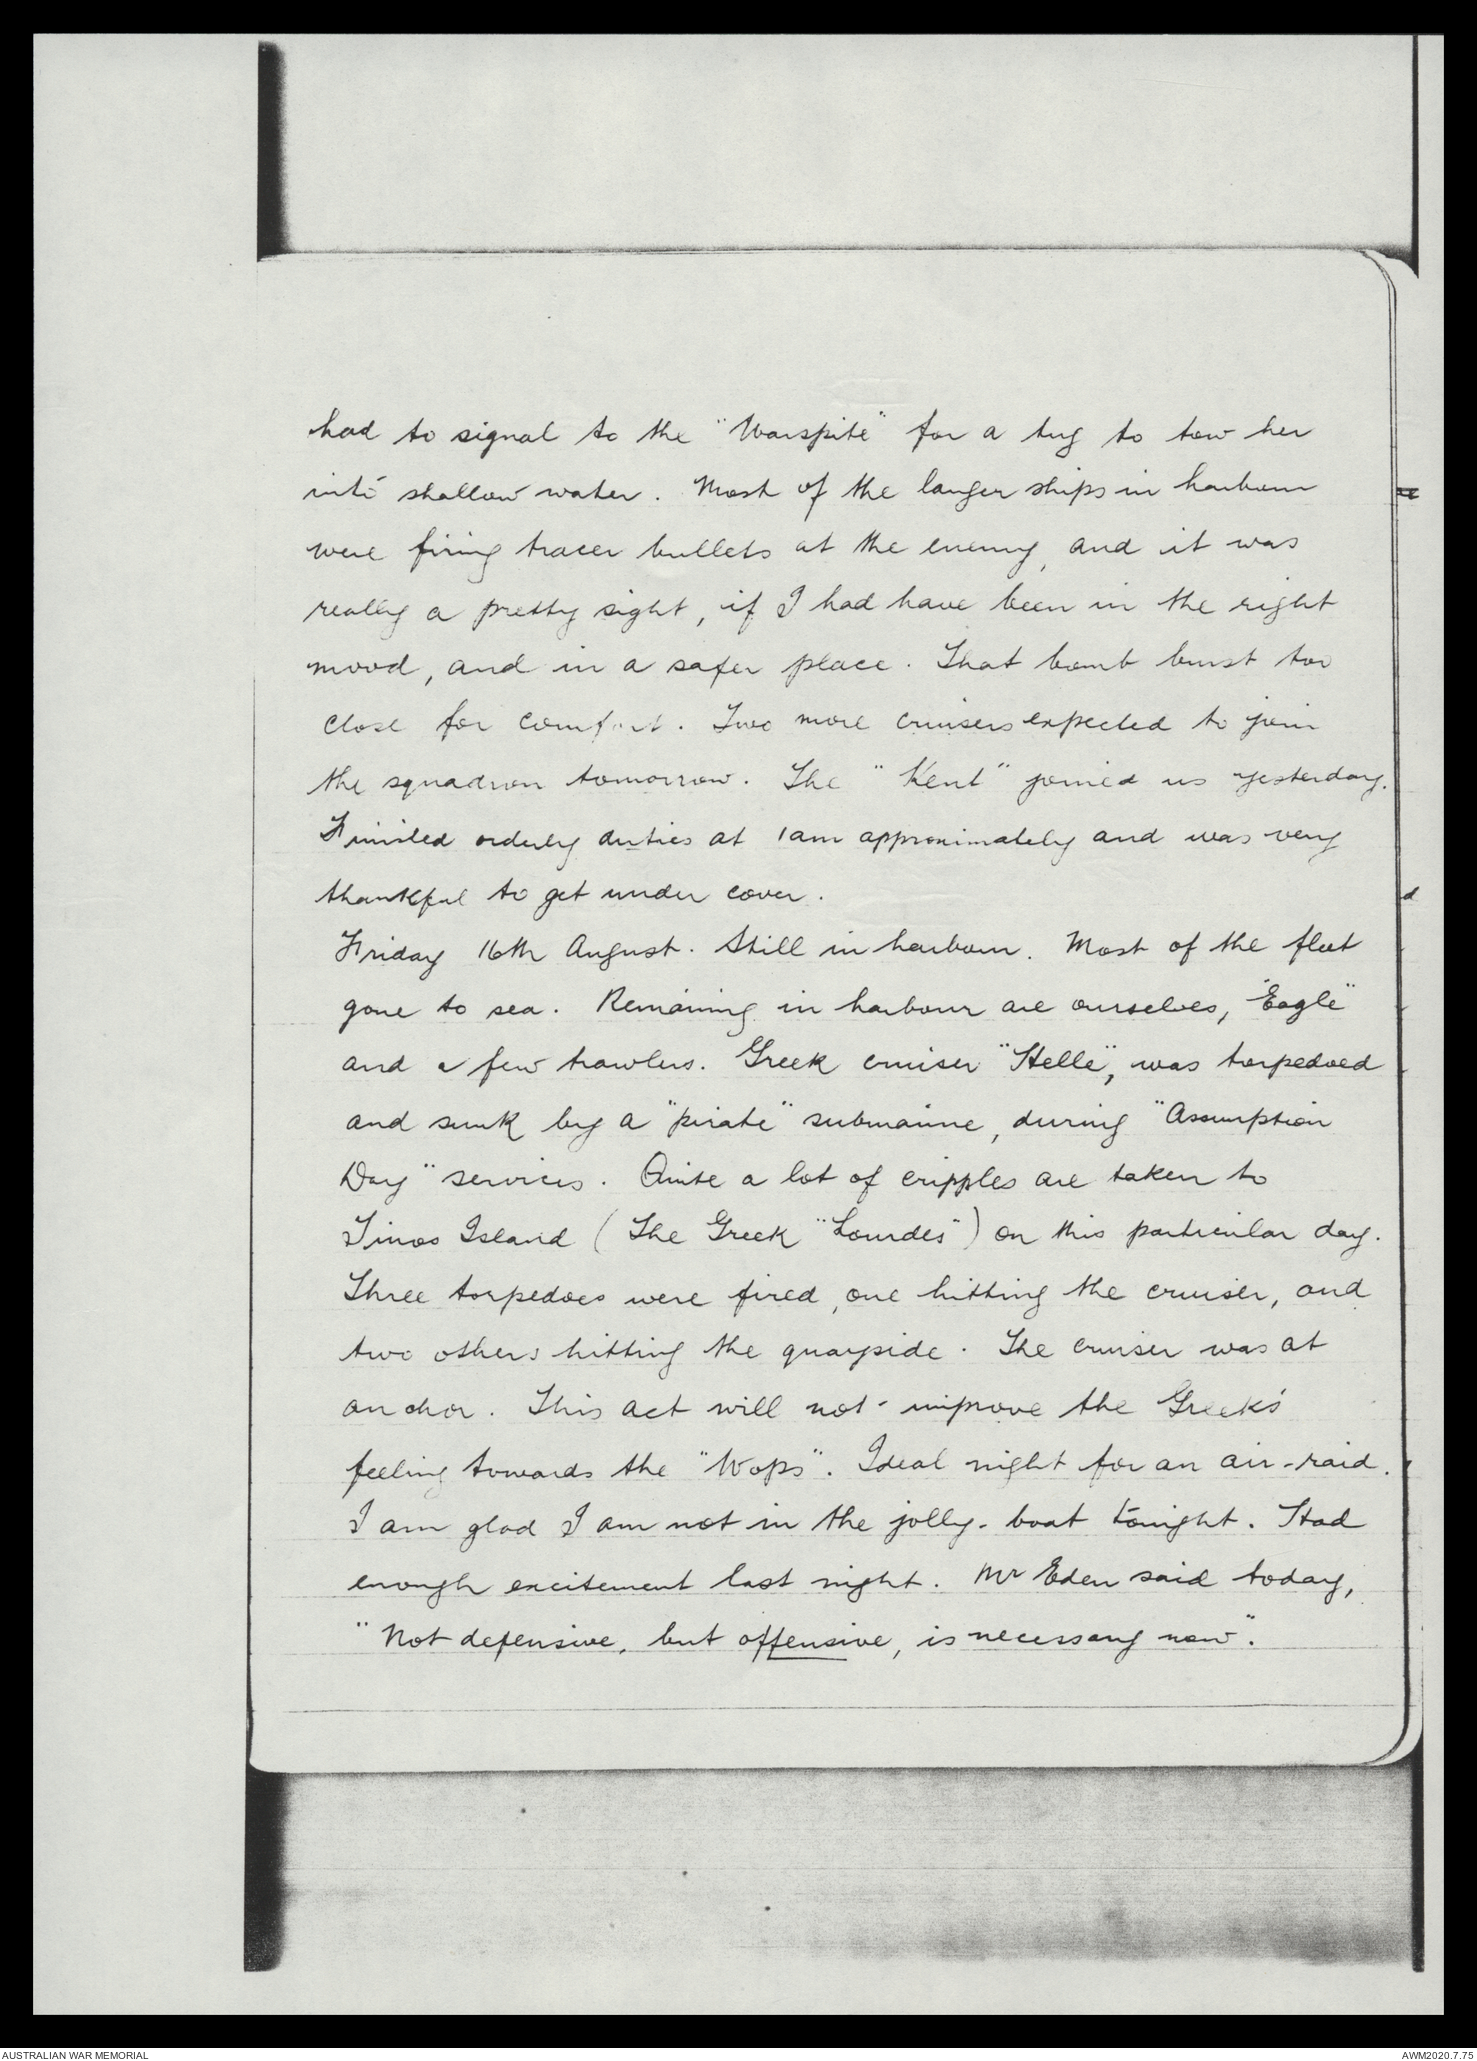 had to signal to the "Warspite" for a tug to tow her
into shallow water. Most of the larger ships in harbour
were firing tracer bullets at the enemy, and it was
really a pretty sight, if I had have been in the right
mood, and in a safer place. That bomb burst too
close for comfort. Two more cruisers expected to join
the squadron tomorrow. The "Kent" joined us yesterday.
Finished orderly duties at 1am approximately and was very
thankful to get under cover.
Friday 16th August. Still in harbour. Most of the fleet
gone to sea. Remaining in harbour are ourselves, "Eagle"
and a few trawlers. Greek cruiser "Helle", was torpedoed
and sunk by a "pirate" submarine, during "Assumption
Day" services. Quite a lot of cripples are taken to
Tinos Island (The Greek "Lourdes") on this particular day.
Three torpedoes were fired, one hitting the cruiser, and
two others hitting the quayside. The cruiser was at
anchor. This act will not improve the Greek's
feeling towards the "Wops". Ideal night for an air-raid.
I am glad I am not in the jolly-boat tonight. Had
enough excitement last night. Mr Eden said today,
"Not defensive, but offensive, is necessary now".
AUSTRALIAN WAR MEMORIAL
AWM2020.7.75